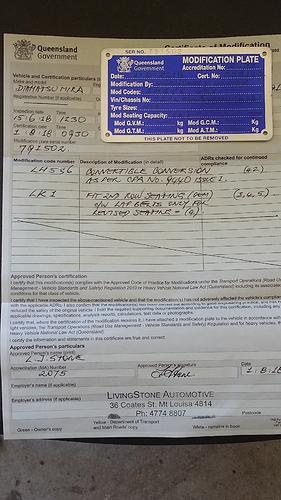 Queensland
Government
Certificate of Modification
SER NO. 791502
Queensland
Government
MODIFICATION PLATE
Accreditation No.:
Date:
Cert. No.:
Modification By:
Mod Codes:
Vin/Chassis No:
Tyre Sizes:
Mod Seating Capacity:
Mod G.V.M.: Kg
Mod G.C.M.: Kg
Mod G.T.M.: Kg
Mod A.T.M.: Kg
THIS PLATE NOT TO BE REMOVED
Vehicle and Certification particulars
Make and model
DIAHATSU MIRA
Registration Number (if applicable)
Inspection date Time
15.6.18 1230
Certification Time
1.8.18 0930
Modification plate serial number
791502
Modification code number
Description of Modification (in detail)
ADRs checked for continued
compliance
CONVERTIBLE CONVERSION
AS PER CPA NO. ISSUE 1.
(42)
LK1
FIT 2ND ROW SEATING (OEM)
(3,4,5)
C/W LAP BELTS ONLY FOR
REVISED SEATING = (4)
Approved Person's certification
I certify that this modification(s) complies with the Approved Code of Practice for Modifications under the Transport Operations (Road Use
Management - Vehicle Standards and Safety) Regulation 2010 or Heavy Vehicle National Law Act (Queensland) including its associated
conditions for that class of vehicle.
I certify that I have inspected the above-mentioned vehicle and that the modification(s) has not adversely affected the vehicle's compliance
I certify the information and statements in this certificate are true and correct.
Approved Person's particulars
Approved Person's name (print)
L.J. STONE
Accreditation (MA) Number
2075
Approved Person's signature
Date
1.8.18
Employer's name (if applicable)
Employer's address (if applicable)
LIVINGSTONE AUTOMOTIVE
36 Coates St. Mt Louisa 4814
Ph: 4774 8807
Postcode
Green - Owner's copy
Yellow - Department of Transport
and Main Roads' copy
White - remains in book